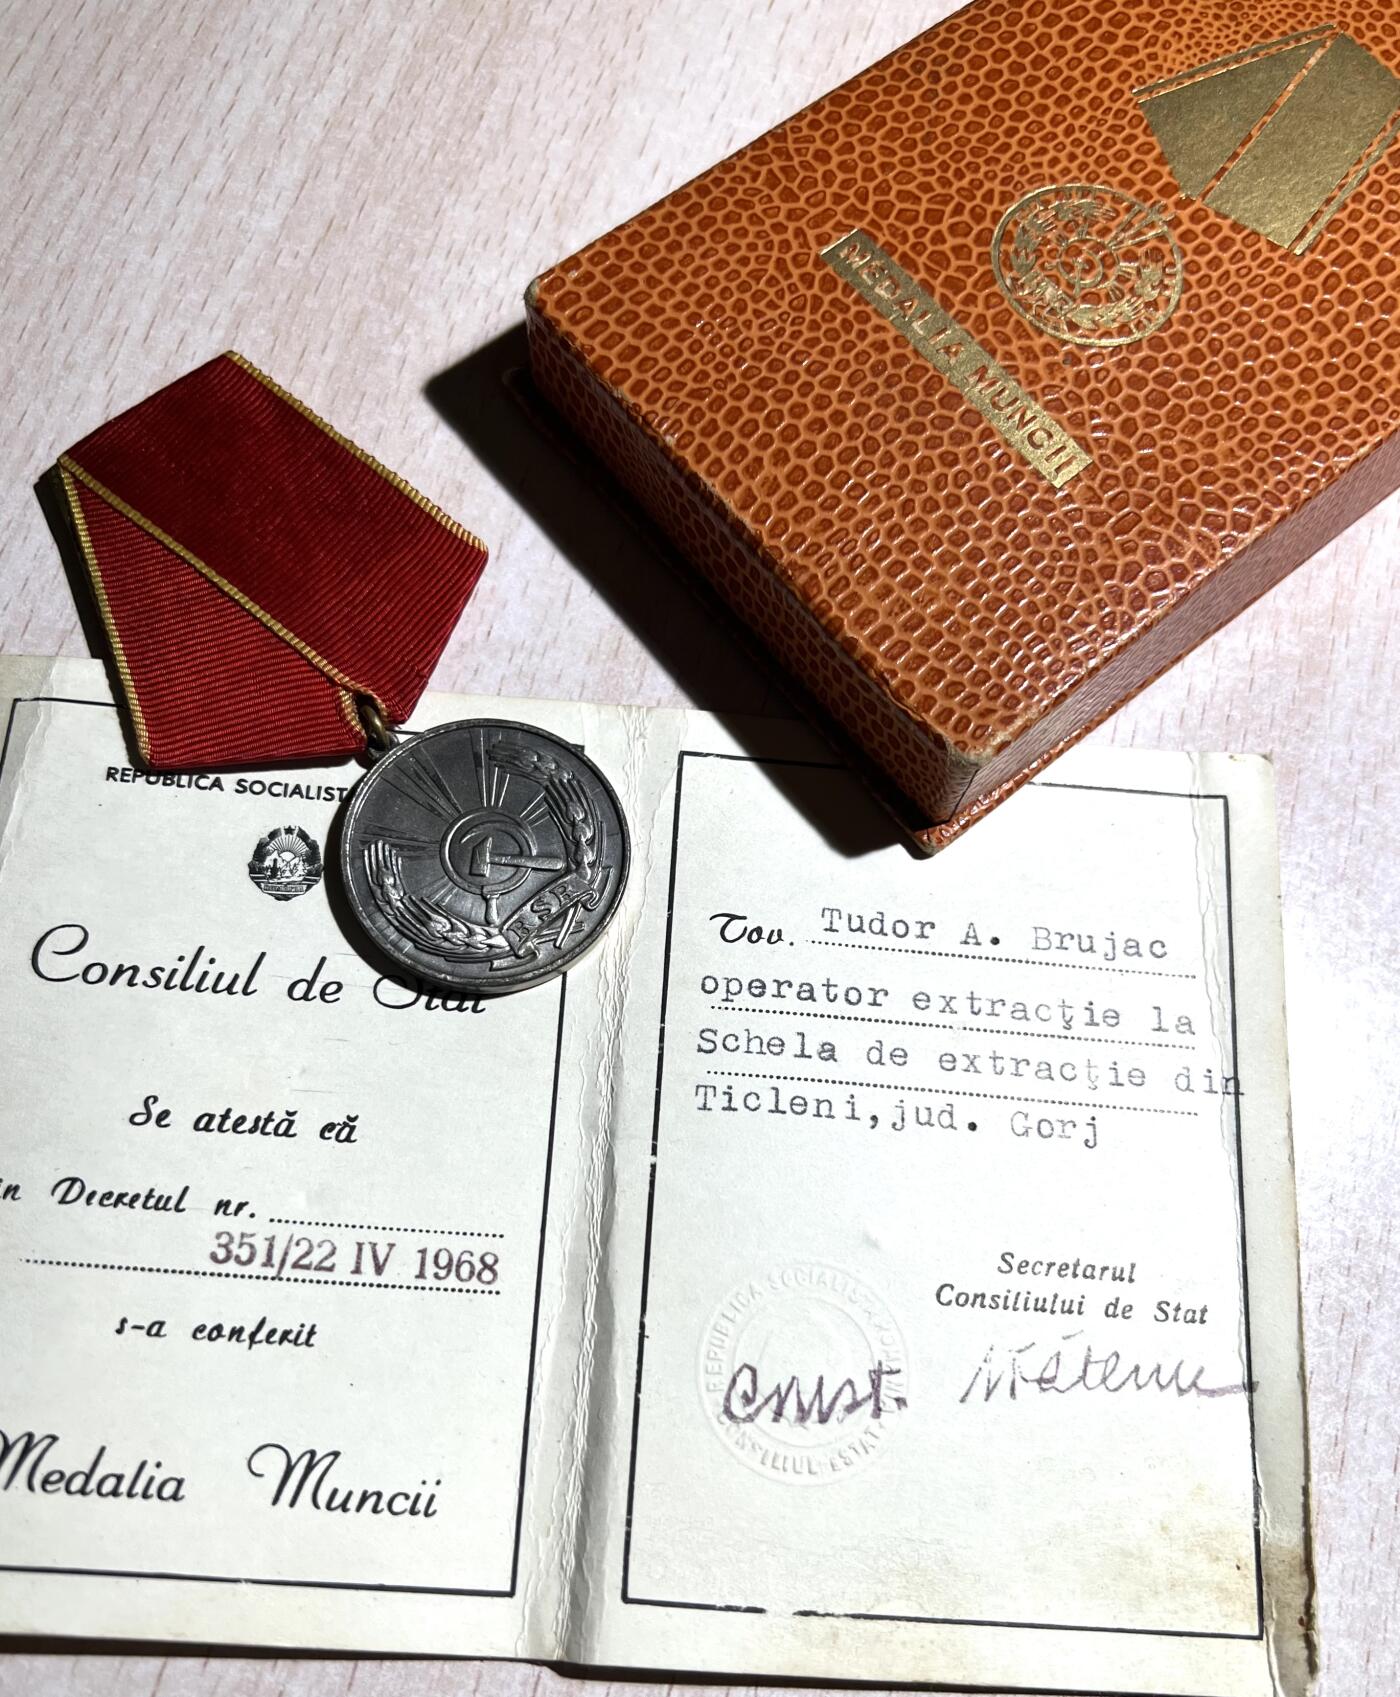 MEDALIA MUNCII
RSR
REPUBLICA SOCIALIST
Consiliul de Stat
Se atestă că
in Decretul nr.
351/22 IV 1968
s-a conferit
Medalia Muncii
Tov. Tudor A. Brujac
operator extracţie la
Schela de extracţie din
Ticleni, jud. Gorj
Secretarul
Consiliului de Stat
REPUBLICA SOCIALISTA ROMANIA
CONSILIUL DE STAT
Const.